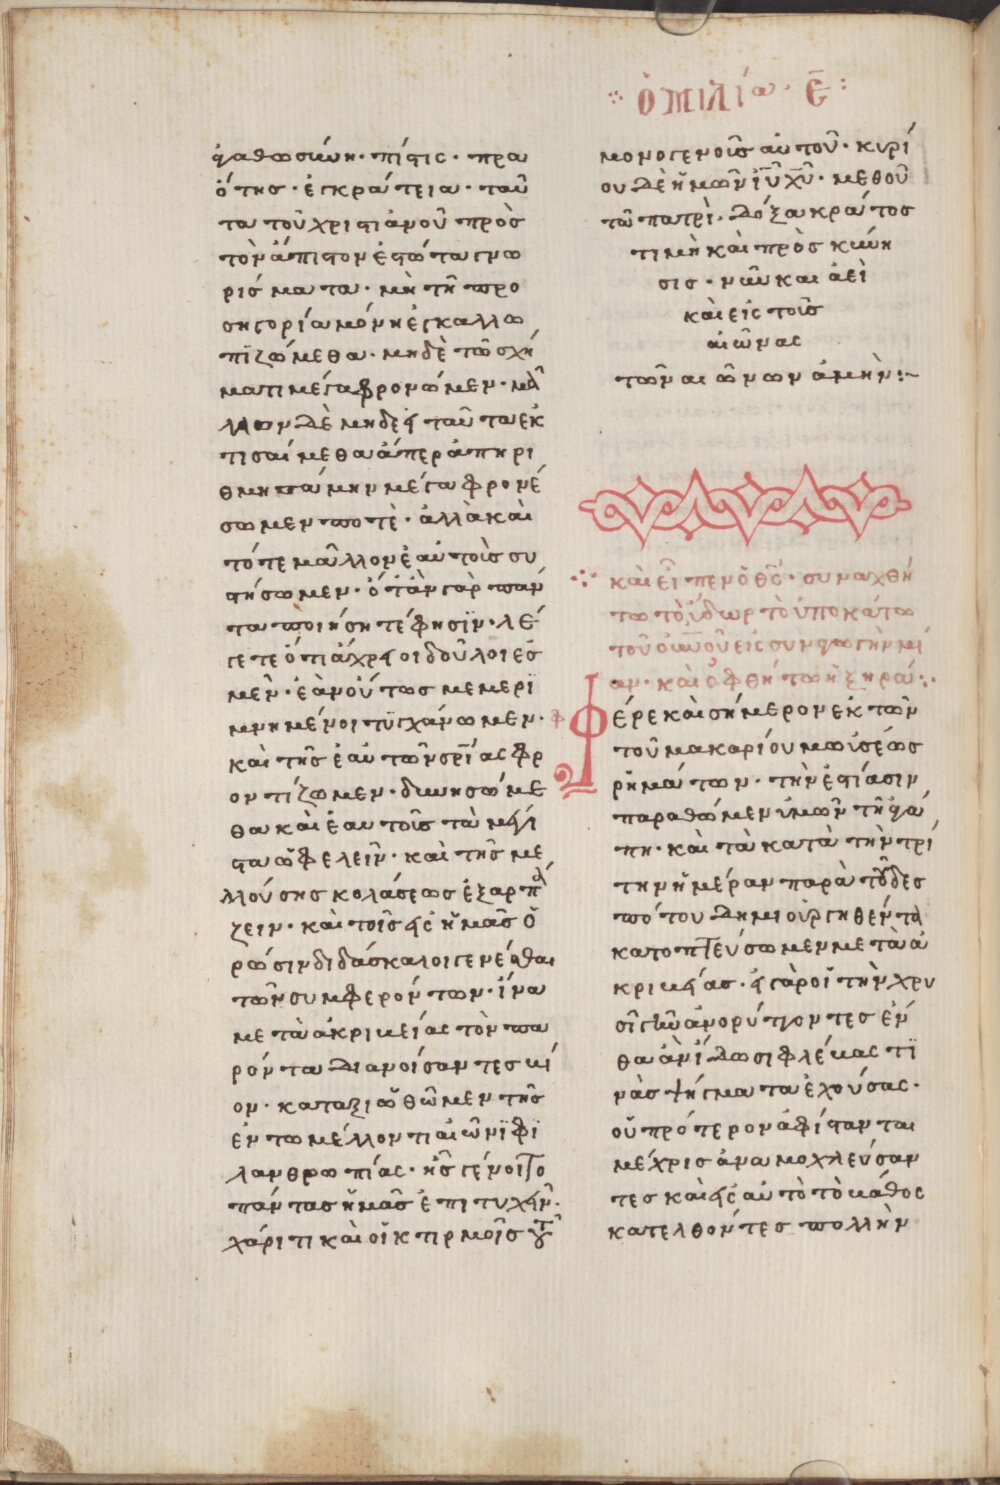 ὁμιλία · ε̄ :
γαθωσύνη · πίστις · πρα
ότης · ἐγκράτεια · ταῦ
τα τοῦ χριστιανοῦ πρὸς
τὸν ἄπιστον ἔστω τὰ γνω
ρίσματα · μὴ τῇ προ
σηγορία μόνη ἐγκαλλω
πϊζώμεθα · μηδὲ τῶ σχή
ματι μέγα φρονῶμεν · μᾶ
λλον δὲ μηδὲ εἰ ταῦτα ἐκ
τισαίμεθα ἅπερ ἀπηρι
θμησάμην μέγα φρονέ
σωμεν ποτὲ · ἀλλὰ καὶ
τότε μᾶλλον ἑαυτοὺς συ
στήσωμεν · ὅταν γὰρ πάν
τα ποιήσητέ φησϊν · λέ
γετε ὅτι ἀχρεῖοι δοῦλοι ἐσ
μὲν · ἐὰν οὕτως μεμερϊ
μνημένοι τϋγχάνωμεν ·
καὶ τῆς ἑαυτῶν σρ̅ίας φρ
οντίζωμεν · δυνησώμε
θα καὶ ἑαυτοὺς τὰ μέγι
στα ὠφελεῖν · καὶ τῆς με
λλούσης κολάσεως ἐξαρπά
ζειν · καὶ τοῖς εἰς ἡμᾶς ὁ
ρώσιν διδάσκαλοι γενέσθαι
τῶν συμφερόντων · ἵνα
μετὰ ἀκριβείας τὸν πα
ρόντα διανοίσαντες βί
ον · καταξιωθῶμεν τῆς
ἐν τω μέλλοντι αἰῶνϊ φϊ
λανθρωπίας · ἧς γένοιτο
πάντας ἡμᾶς ἐπιτυχεῖν ·
χάριτι καὶ οἰκτιρμοῖς τοῦ
μονογενοῦς αὐτοῦ · κυρί
ου δὲ ἡμῶν ῑῡ χ̅υ̅ · μεθ οὗ
τῶ πατρὶ · δόξα κράτος
τιμὴ καὶ πρὸς κύνη
σις · νῦν και ἀεὶ
καὶ εἰς τοὺς
αἰῶνας
τῶν αιώνων ἀμὴν :~
καὶ εἶπεν ὁ θς̅ · συναχθή
τω τὸ ὕδωρ τὸ ὑποκάτω
τοῦ ου̅νου̅ εἰς συναγωγὴν μί
αν · καὶ ὀφθήτω ἡ ξηρά :·
Φέρε καὶ σήμερον ἐκ τῶν
τοῦ μακαρίου μωϋσέως
ῥημάτων · τὴν ἑστίασιν
παραθώμεν ὑμῶν τῆ ἀγά
πη · καὶ τὰ κατὰ τὴν τρί
την ἡμέραν παρὰ τοῦ δες
πότου δημιουργηθέντα
κατοπτεύσωμεν μετὰ ἀ
κριβείας · εἰ γὰρ οἱ τὴν χρυ
σῖτιν ἀνορύττοντες ἔν
θα ἂν ἴδωσι φλέβας τϊ
νὰς ψήγματα ἐχούσας ·
οὐ πρότερον ἀφίστανται
μέχρις ἀναμοχλεύσαν
τες καὶ εἰς αὐτὸ τὸ βάθος
κατελθόντες πολλὴν